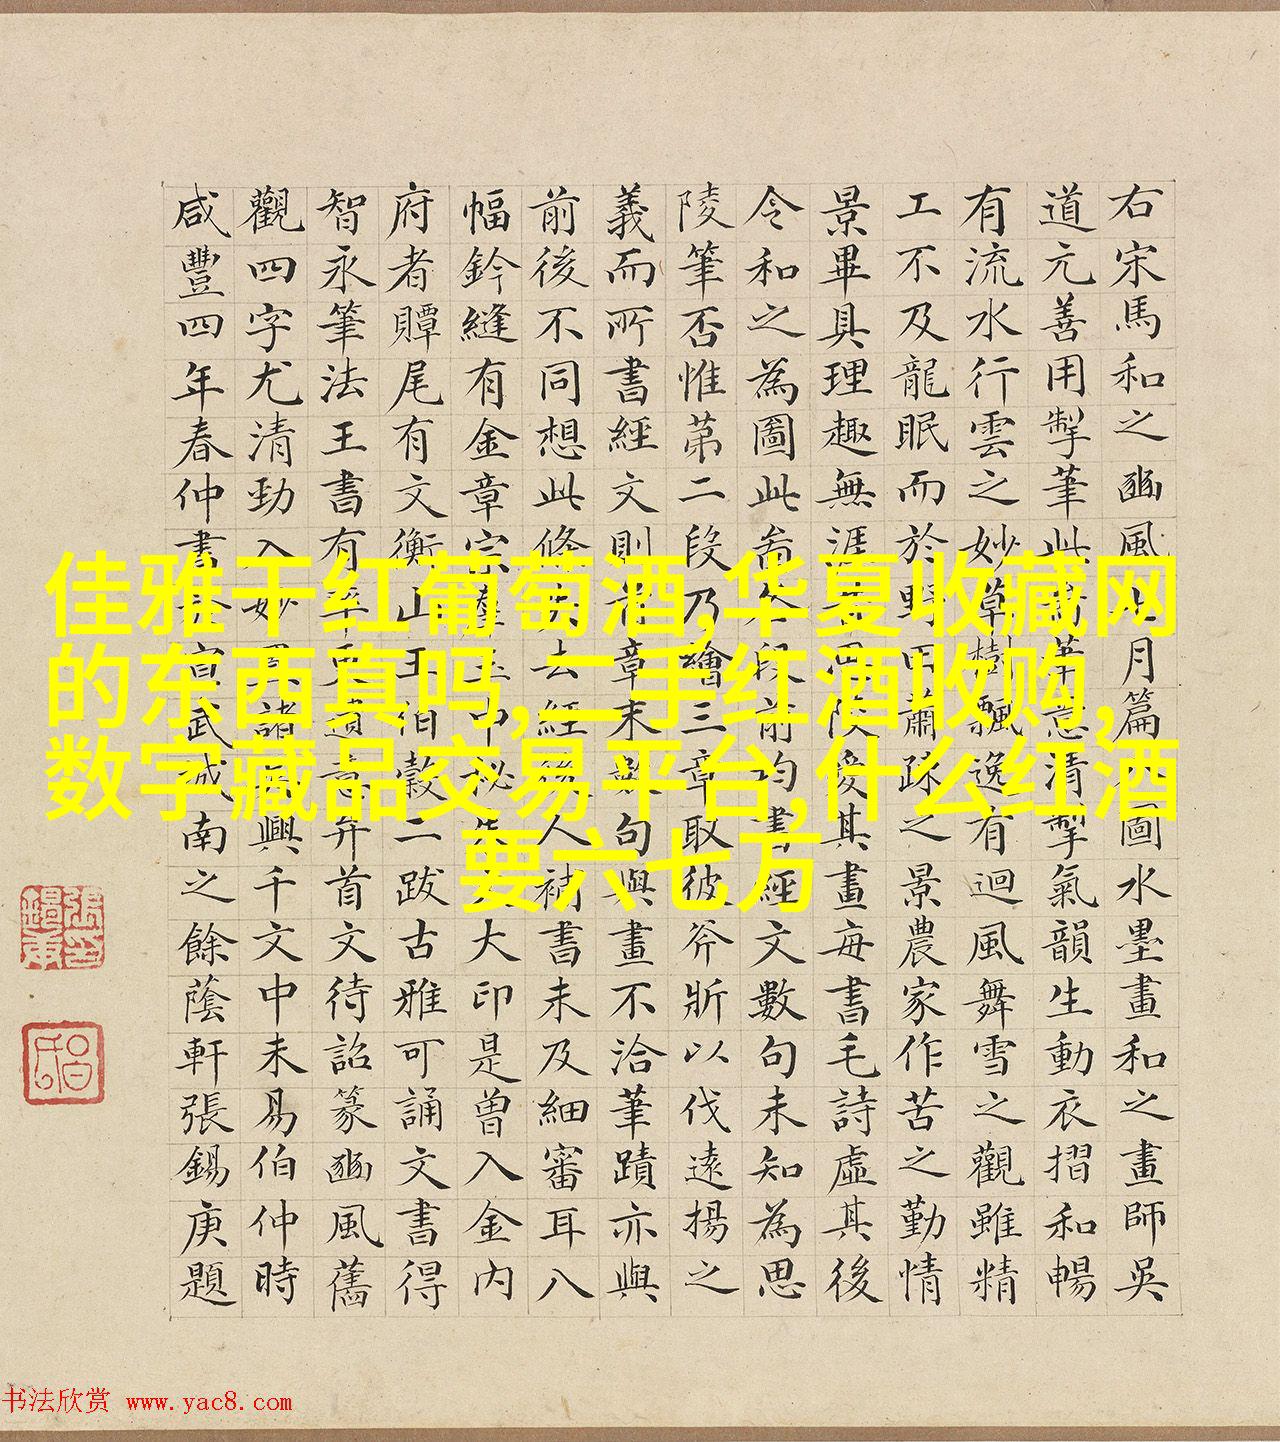 右宋馬和之豳風七月篇圖水墨畫和之畫師吳
道元善用掣筆此卷筆意清掣氣韻生動衣摺和暢
有流水行雲之妙草樹飄逸有迴風舞雪之觀雖精
工不及龍眠而於野田蕭疎之景農家作苦之勤情
景畢具理趣無涯愛其畫每書毛詩虛其後
令和之為圖此卷各段前均書經文數句未知為思
陵筆否惟第二段乃繪三章取彼斧斨以伐遠揚之
義而所書經文則首章末數句與畫不洽筆蹟亦與
前後不同想此條失去經後人補書未及細審耳八
幅鈐縫有金章宗群玉中秘朱文大印是曾入金內
府者贉尾有文衡山王伯穀二跋古雅可誦文書得
智永筆法王書有率更遺意弁首文待詔篆豳風舊
觀四字尤清勁入妙買諸興千文中未易伯仲時
咸豐四年春仲書於宣武城南之餘蔭軒張錫庚題
佳雅干红葡萄酒,华夏收藏网
的东西真吗,二手红酒收购,
数字藏品交易平台,什么红酒
要六七方
书法欣赏 www.yac8.com